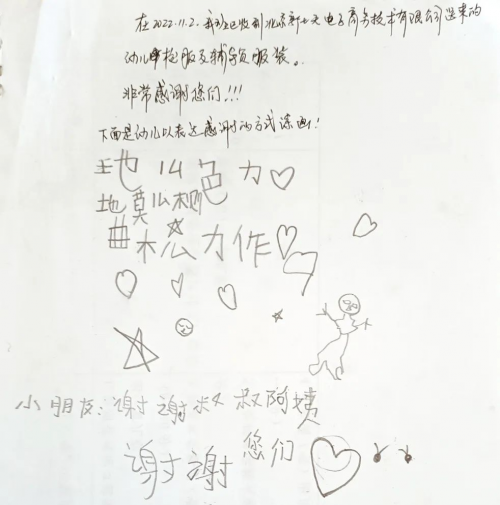 在2022.11.2.我班已收到北京新七天电子商务技术有限公司送来的
幼儿  服及辅导员服装。
非常感谢您们!!!
下面是幼儿以表达感谢的方式涂画!
地 么 色 力
地 莫 么
曲 松 力 作
小朋友:谢谢叔叔阿姨
谢谢 您们